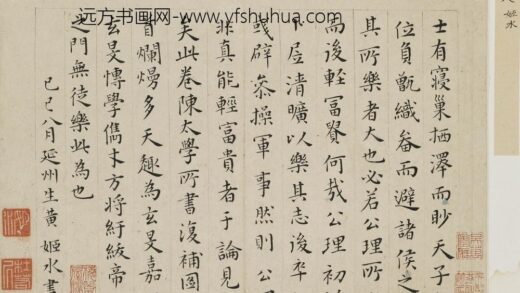 远方书画网-www.yfshuhua.com
姬水
士有寢巢栖澤而眇天子
位負甑織畚而避諸侯之
其所樂者大也必若公理所
而後輕富貴何哉公理初
居清曠以樂其志後卒
或辟叅操軍事然則公
非真能輕富貴者于論見
矣此卷陳太學所書復補圖
首爛熳多天趣為玄旻嘉
玄旻博學雋才方將紆紱帝
之門無徒樂此為也
己巳八月延州生黃姬水書